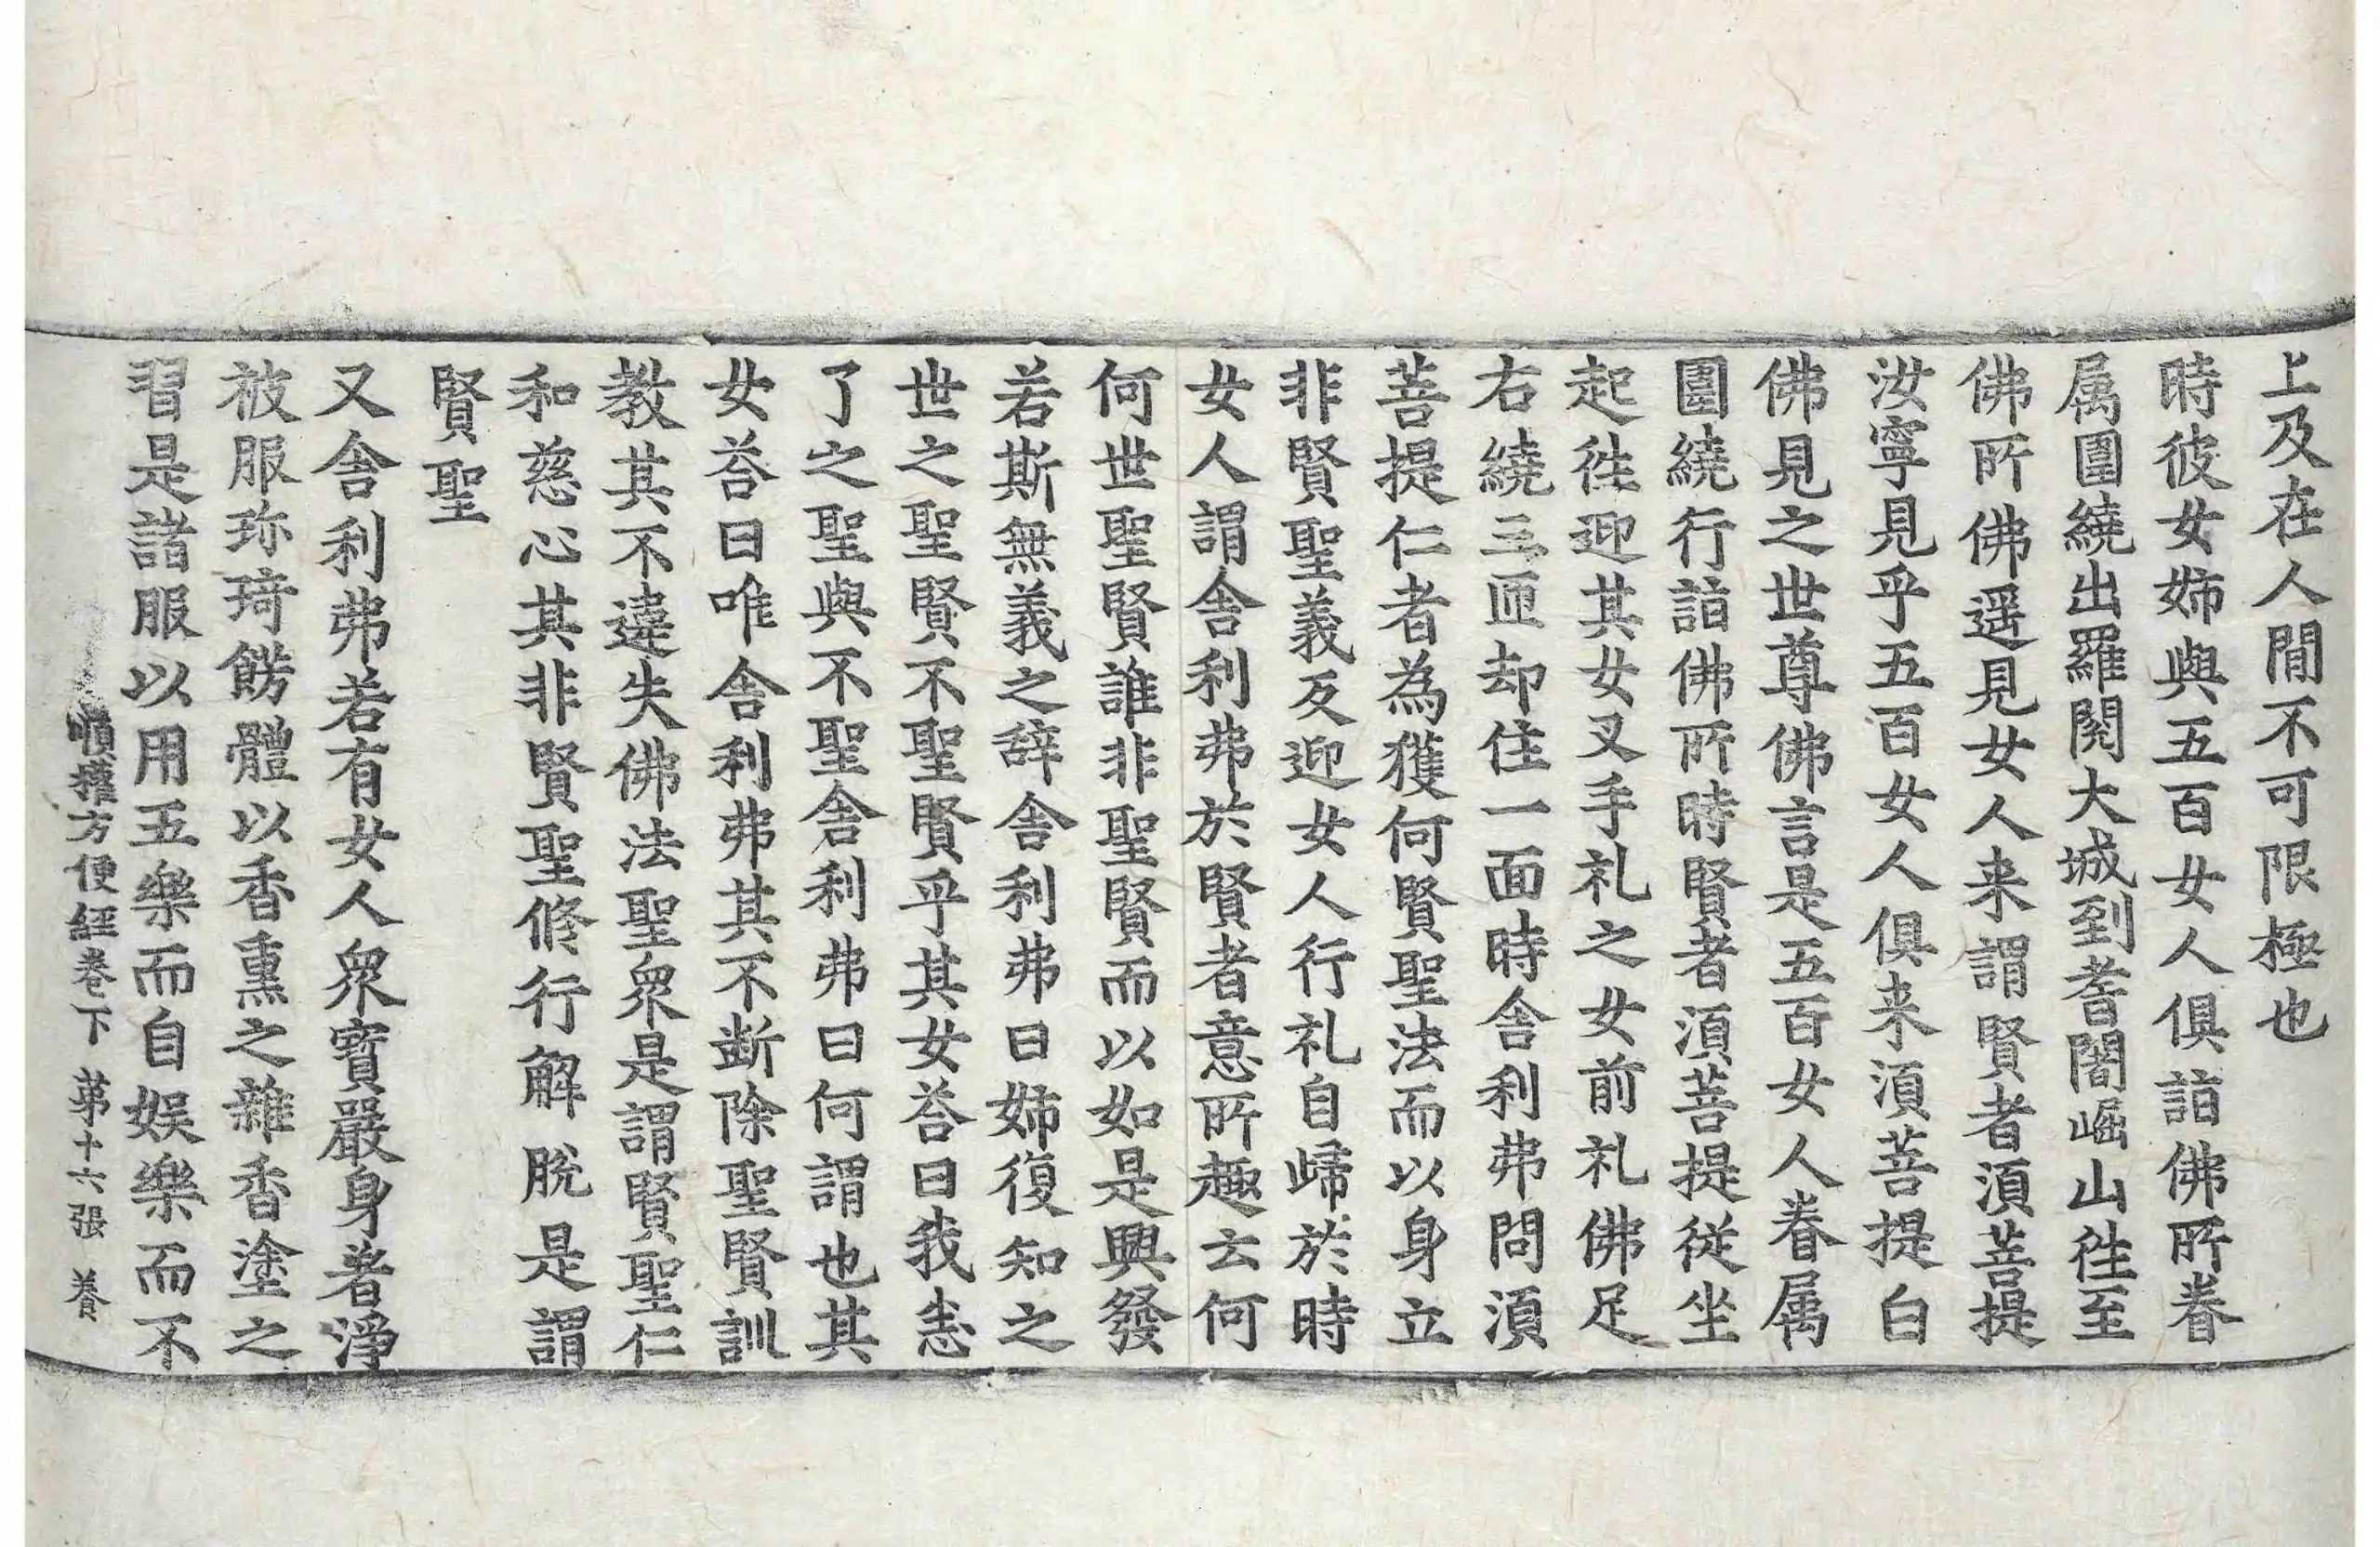 上及在人間不可限極也
時彼女姉與五百女人俱詣佛所眷
属圍繞出羅閱大城到耆闍崛山往至
佛所佛遥見女人来謂賢者湏菩提
汝寧見乎五百女人俱来湏菩提白
佛見之世尊佛言是五百女人眷属
圍繞行詣佛所時賢者湏菩提從坐
起往迎其女叉手礼之女前礼佛足
右繞三匝却住一面時舍利弗問湏
菩提仁者為獲何賢聖法而以身立
非賢聖義反迎女人行礼自歸於時
女人謂舍利弗於賢者意所趣云何
何世聖賢誰非聖賢而以如是興發
若斯無義之辞舍利弗曰姉復知之
世之聖賢不聖賢乎其女荅曰我悉
了之聖與不聖舍利弗曰何謂也其
女荅曰唯舍利弗其不断除聖賢訓
教其不違失佛法聖衆是謂賢聖仁
和慈心其非賢聖修行解脱是謂
賢聖
又舍利弗若有女人衆寶嚴身著淨
被服珎琦餝體以香熏之雜香塗之
習是諸服以用五樂而自娱樂而不
順權方便經卷下 第十六張 養